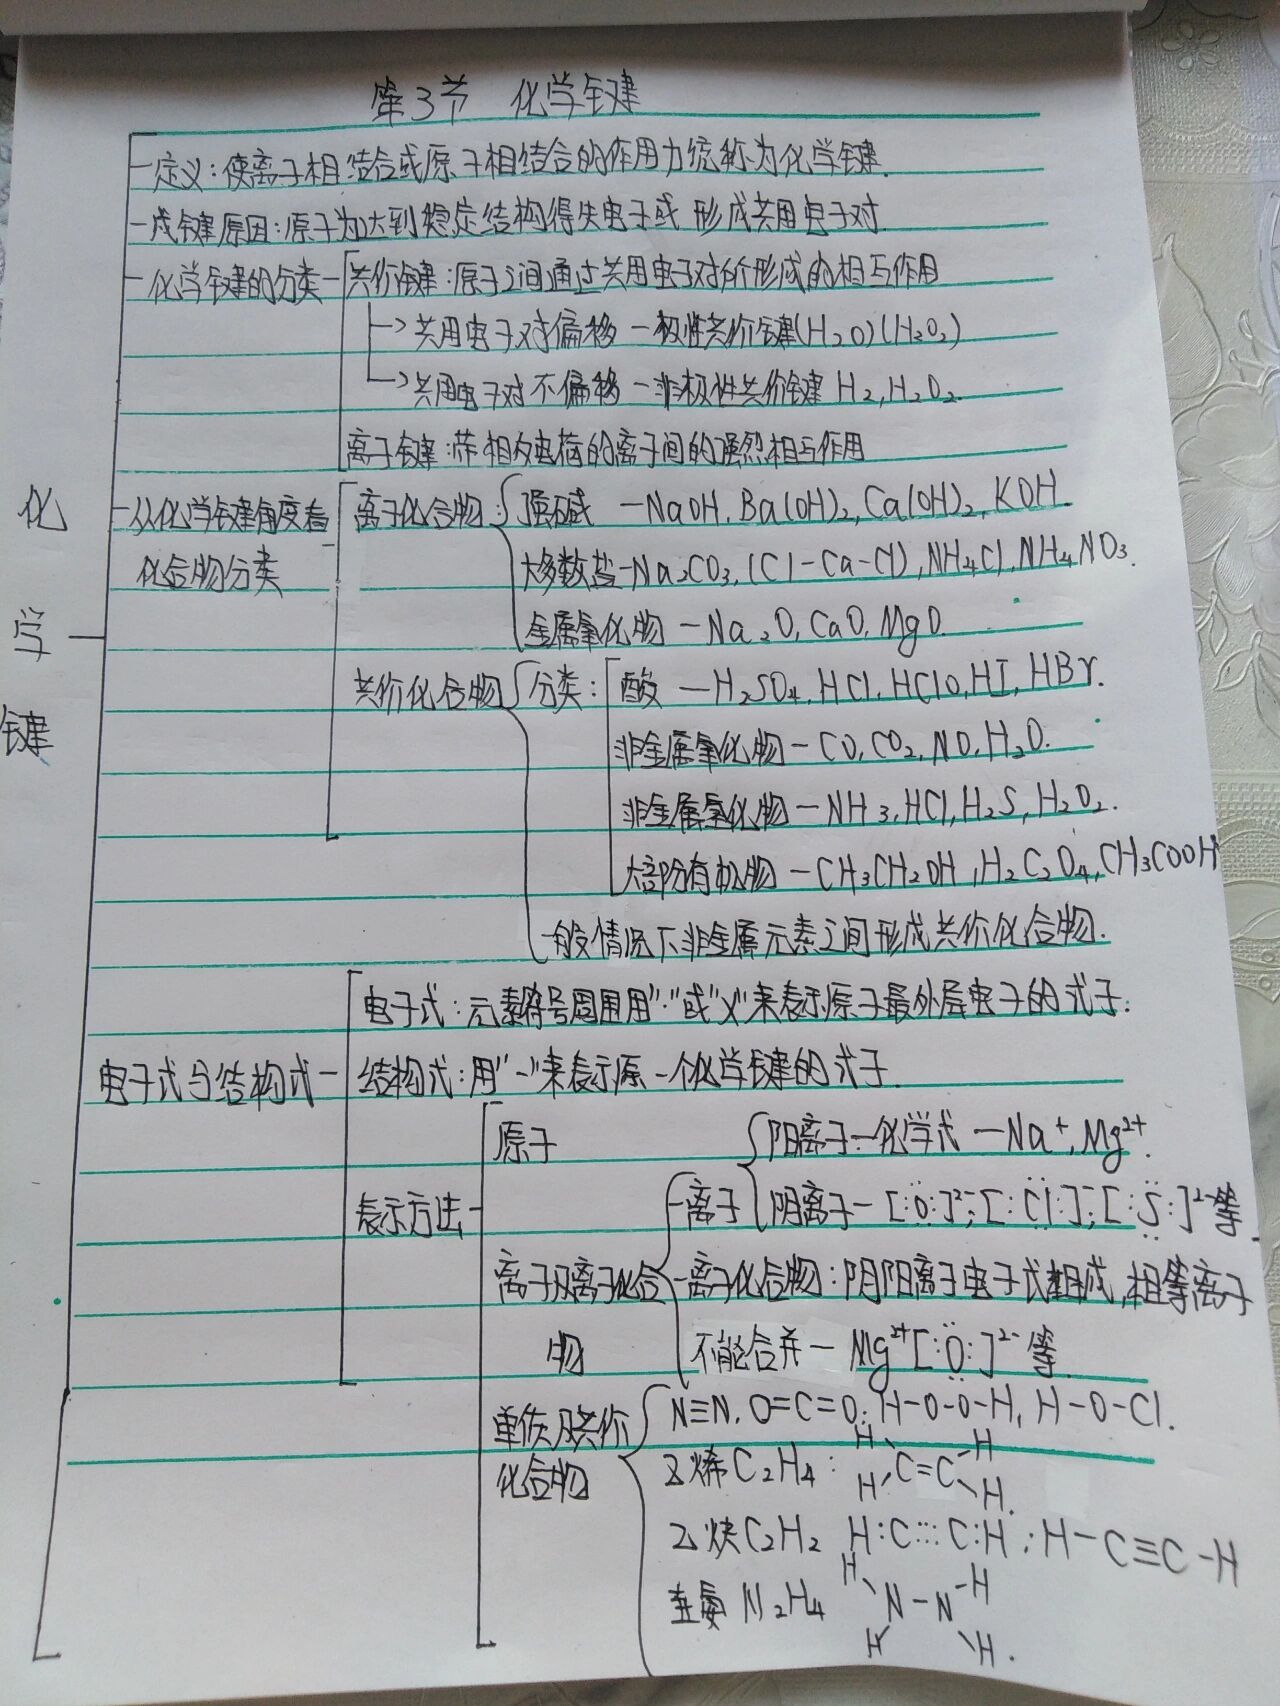 第3节 化学键
定义:使离子相结合或原子相结合的作用力统称为化学键.
成键原因:原子为达到稳定结构得失电子或形成共用电子对.
化学键的分类 共价键:原子之间通过共用电子对所形成的相互作用
→共用电子对偏移—极性共价键(H₂O)(H₂O₂)
→共用电子对不偏移—非极性共价键 H₂,H₂O₂.
离子键:带相反电荷的离子间的强烈相互作用
化学键
从化学键角度看 离子化合物: 强碱 —NaOH,Ba(OH)₂,Ca(OH)₂,KOH.
化合物分类 大多数盐—Na₂CO₃,(Cl-Ca-Cl),NH₄Cl,NH₄NO₃.
金属氧化物 —Na₂O,CaO,MgO.
共价化合物 分类: 酸 —H₂SO₄,HCl,HClO,HI,HBr.
非金属氧化物—CO,CO₂,NO,H₂O.
非金属氢化物—NH₃,HCl,H₂S,H₂O₂.
大部份有机物—CH₃CH₂OH,H₂C₂O₄,CH₃COOH
一般情况下非金属元素之间形成共价化合物.
电子式:元素符号周围用"·"或"x"来表示原子最外层电子的式子.
电子式与结构式— 结构式:用"-"来表示原一个化学键的式子.
表示方法— 原子
离子及离子化合物
离子 阳离子—化学式—Na⁺,Mg²⁺.
阴离子—[:Ö:]²⁻;[:Cl:]⁻;[:S:]²⁻等.
离子化合物:阴阳离子电子式组成,相等离子
不能合并—Mg²⁺[:Ö:]²⁻等
单质及共价化合物
N≡N, O=C=O; H-O-O-H, H-O-Cl.
乙烯C₂H₄: H H C=C H H.
乙炔C₂H₂ H:C⋮⋮C:H;H-C≡C-H
N₂H₄ H H N-N H H.